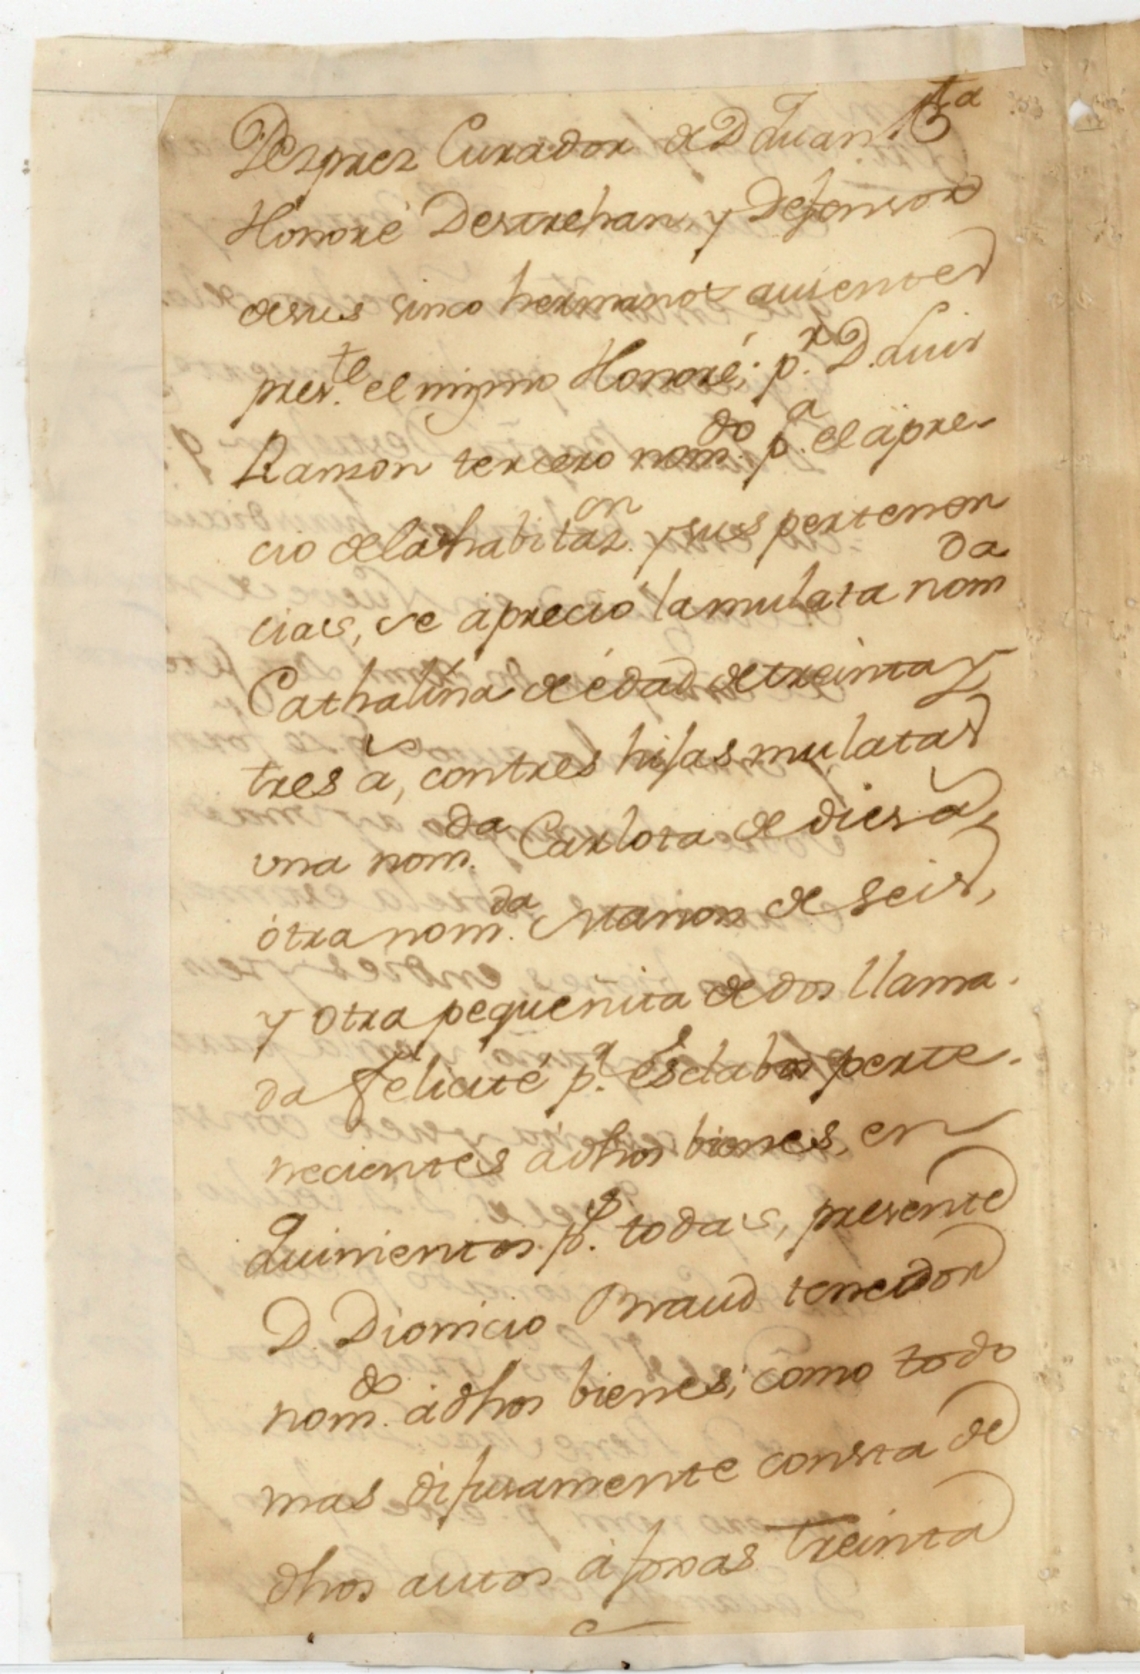 Desprez Curador de D. Juan Bta
Honoré Destrehan, y Defensor
desus sinco hermanos ausentes
preste. el mismo Honoré; pr. D. Luis
Ranson tercero nomdo. pa. el äpre-
cio delahabitazon. y sus pertenen
cias, se äprecio lamulata nomda
Cathalina de edad detreinta y
tres a, contres hijas mulatas
una nomda. Carlota de dies a,
ótra nomda. Manon de seis,
y otra pequenita de dos llama-
da Felicité pr. Esclabas perte-
necientes ádhos bienes, en
quinientos ps. todas, presente
D. Dionicio Braud tenedor
nomdo. ádhos bienes; como todo
mas difusamente consta de
dhos autos áfoxas treinta